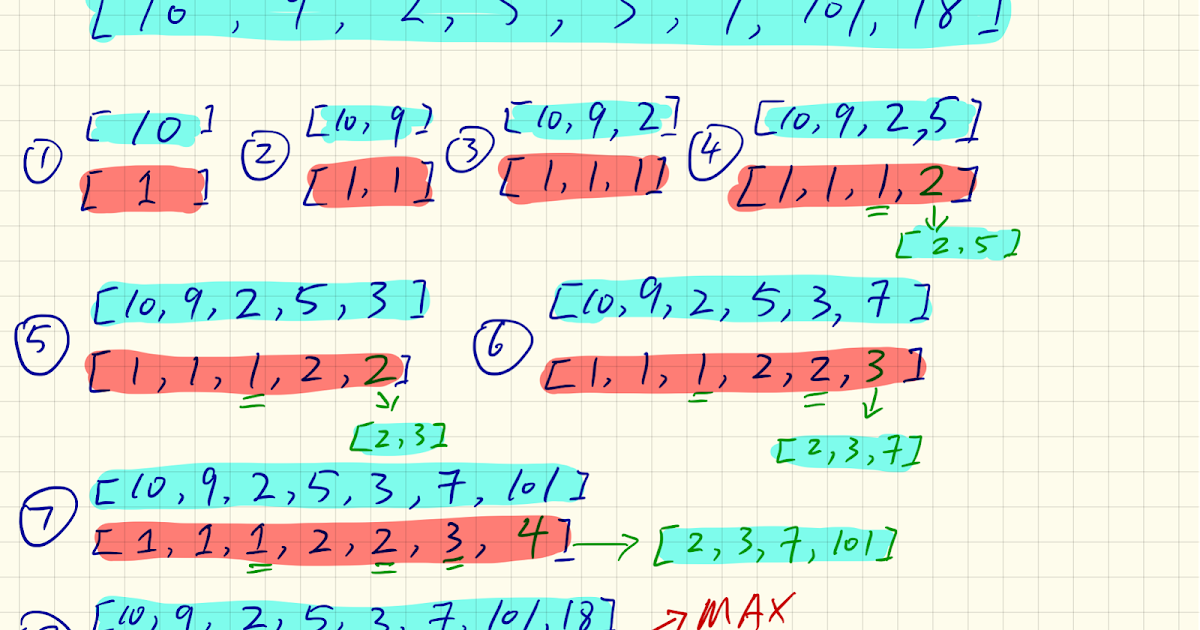 [ 10 , 9 , 2 , 5 , 3 , 7 , 101 , 18 ]
① [ 10 ] ② [10, 9] ③ [10, 9, 2] ④ [10, 9, 2, 5]
[ 1 ] [ 1, 1 ] [ 1, 1, 1 ] [ 1, 1, 1, 2 ]
[ 2, 5 ]
⑤ [10, 9, 2, 5, 3 ] ⑥ [10, 9, 2, 5, 3, 7 ]
[ 1, 1, 1, 2, 2 ] [ 1, 1, 1, 2, 2, 3 ]
[2, 3] [ 2, 3, 7 ]
⑦ [10, 9, 2, 5, 3, 7, 101 ]
[ 1, 1, 1, 2, 2, 3, 4 ] → [ 2, 3, 7, 101 ]
[10, 9, 2, 5, 3, 7, 101, 18 ] → MAX